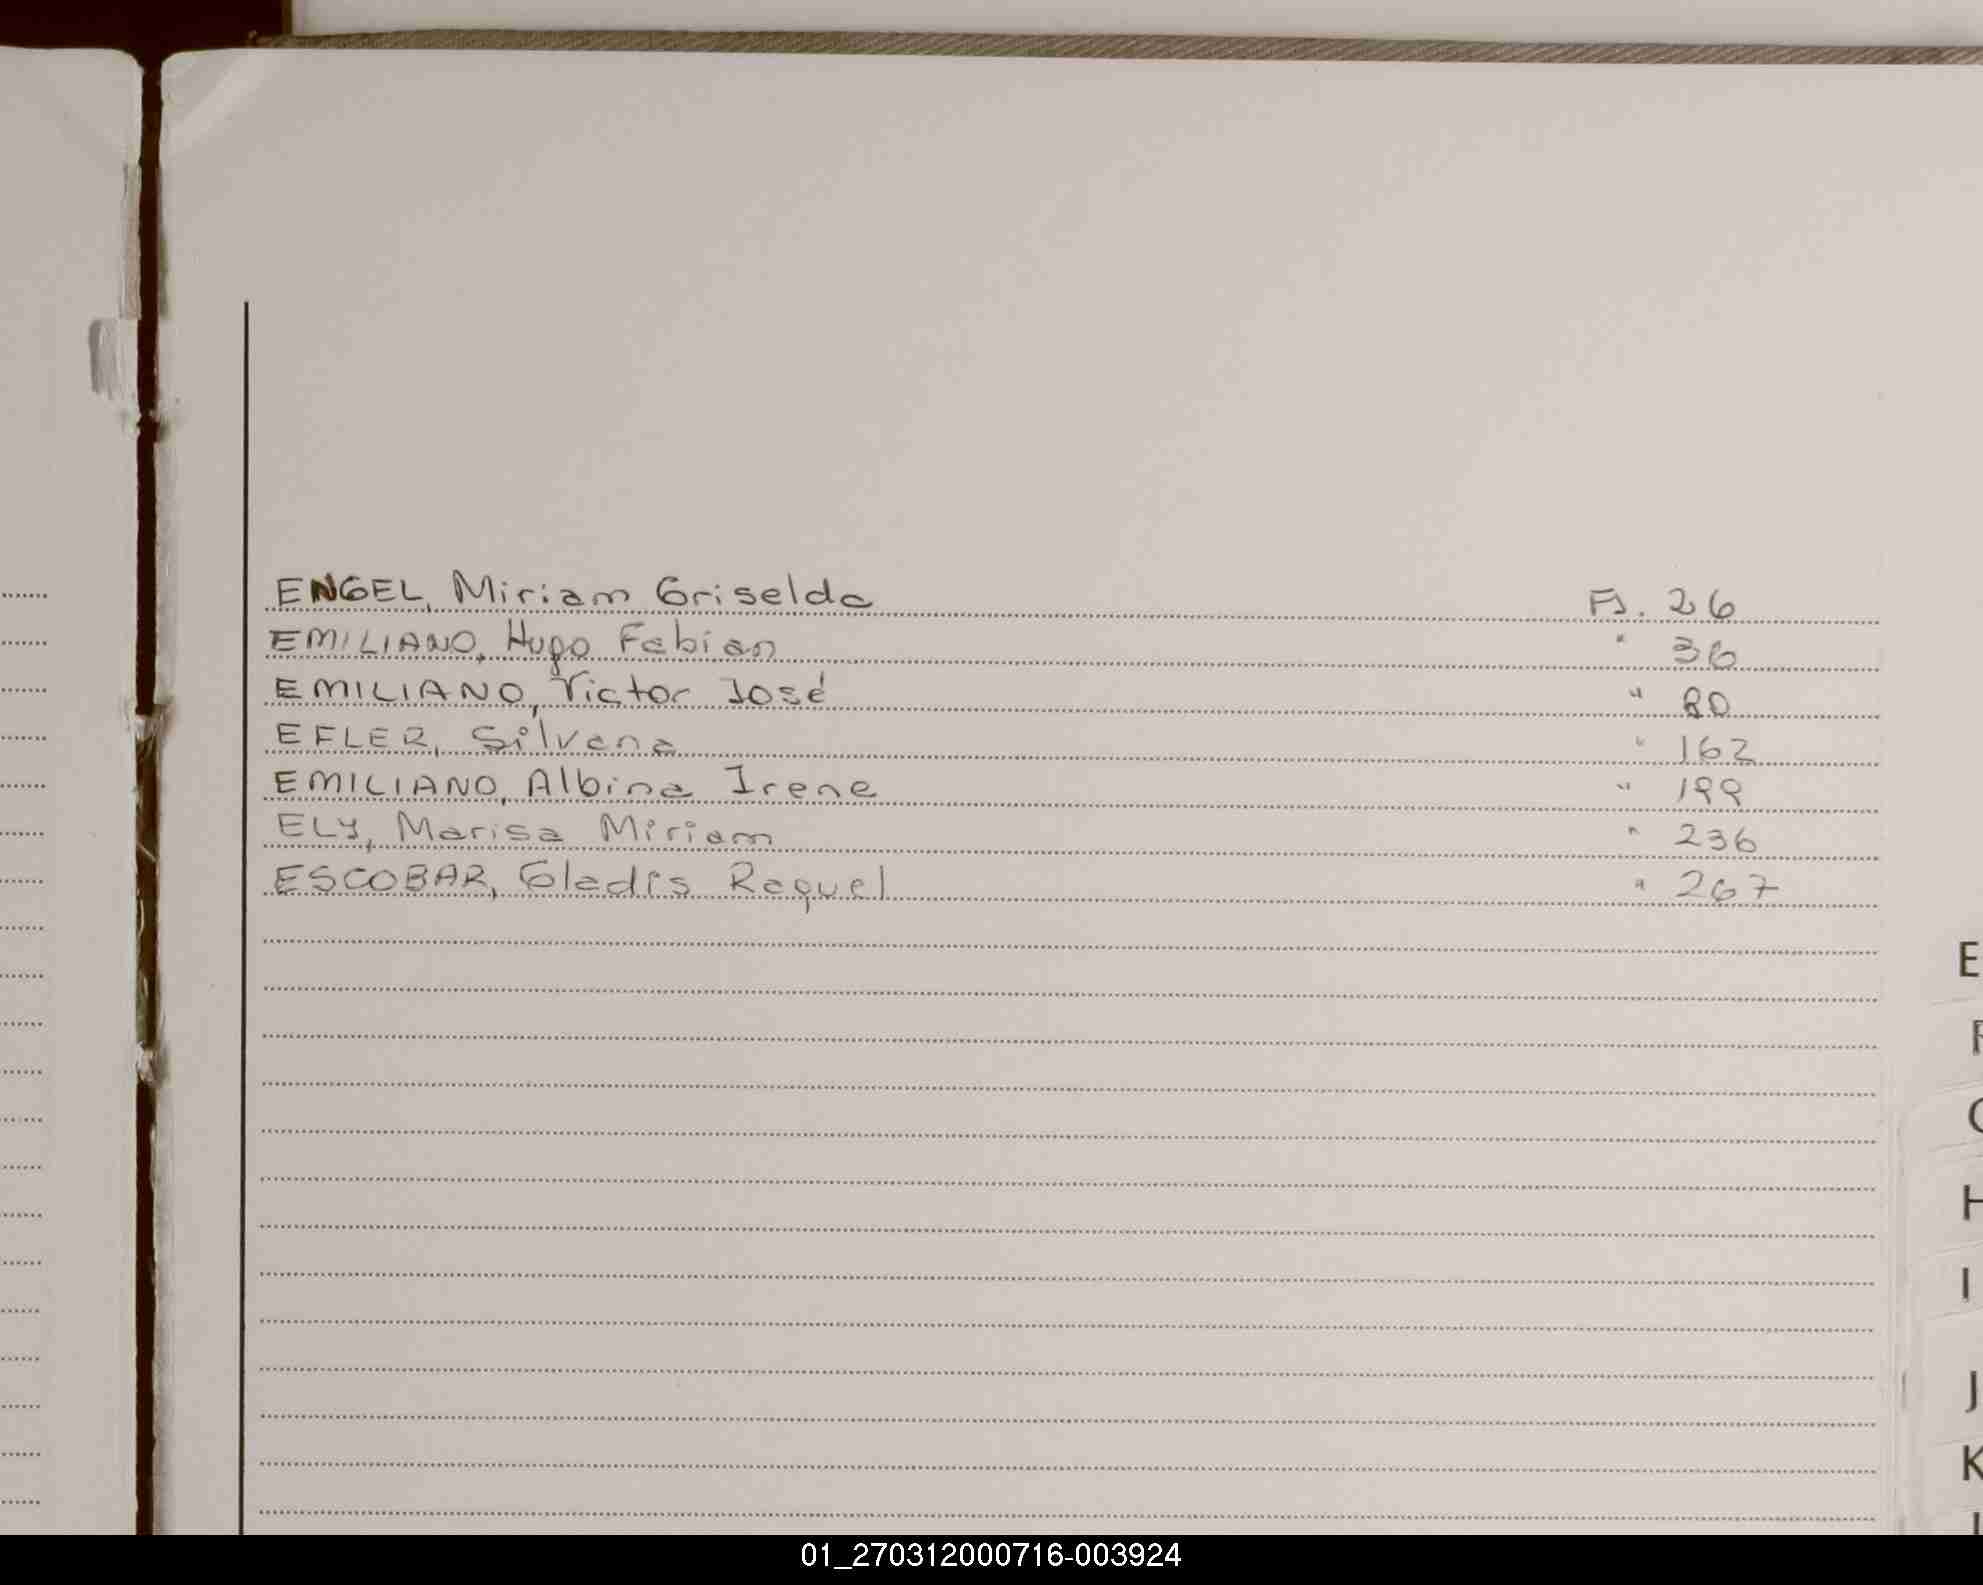 ENGEL, Miriam Griselda Fs. 26
EMILIANO, Hugo Fabian " 36
EMILIANO, Victor José " 80
EFLER, Silvana " 162
EMILIANO, Albina Irene " 199
ELY, Marisa Miriam " 236
ESCOBAR, Gladis Raquel " 267
E
F
G
H
I
J
K
01_270312000716-003924